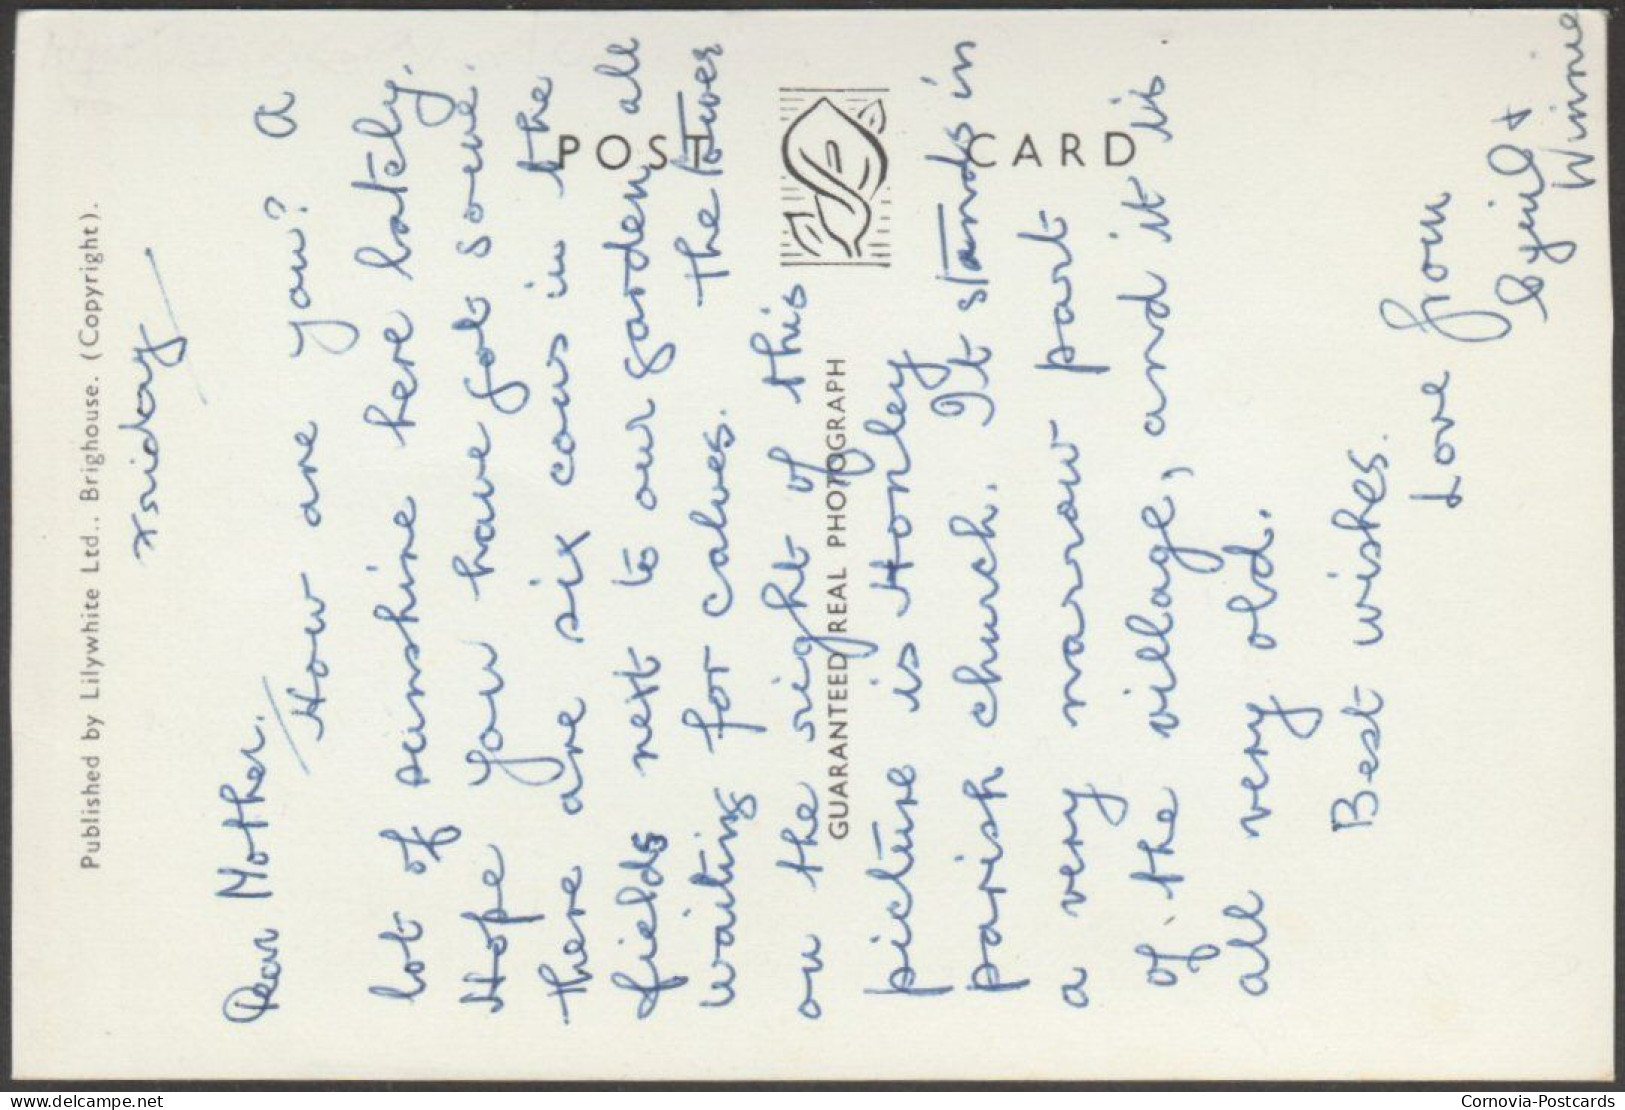 Published by Lilywhite Ltd., Brighouse. (Copyright).
Friday
Dear Mother.
How are you? A
lot of sunshine here lately.
Hope you have got some.
there are six cows in the
fields next to our garden, all
waiting for calves. The tower
on the right of this
picture is Honley
parish church. It stands in
a very narrow part
of the village, and it is
all very old.
Best wishes.
Love from
Cyril +
Winnie
POST CARD
GUARANTEED REAL PHOTOGRAPH
delcampe.net
Cornovia-Postcards